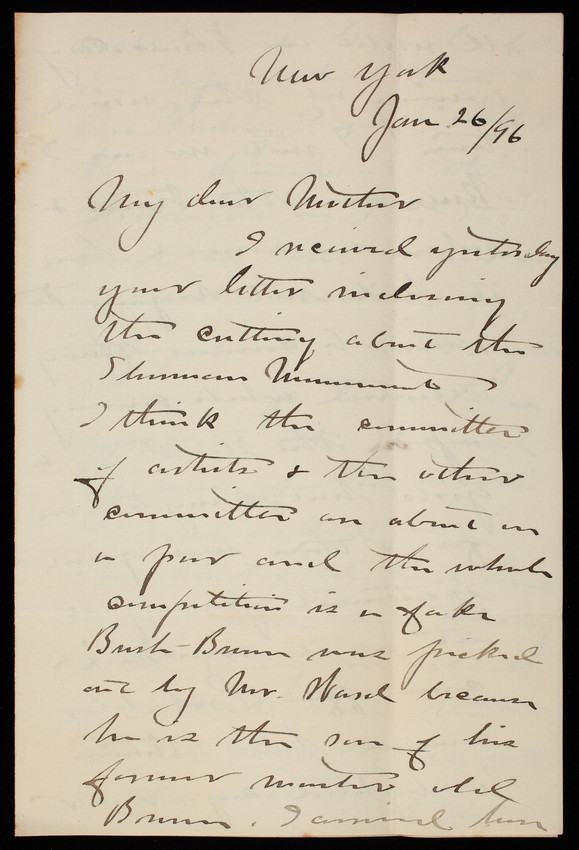 New York
Jan 26/96
My dear Mother
I recieved yesterday
your letter inclosing
the cutting about the
Sherman Monument
I think the committee
of artists & the other
committee are about on
a par and the whole
competition is a fake
Bush-Brown was picked
out by Mr. Ward because
he is the son of his
former master old
Brown. I arrived here